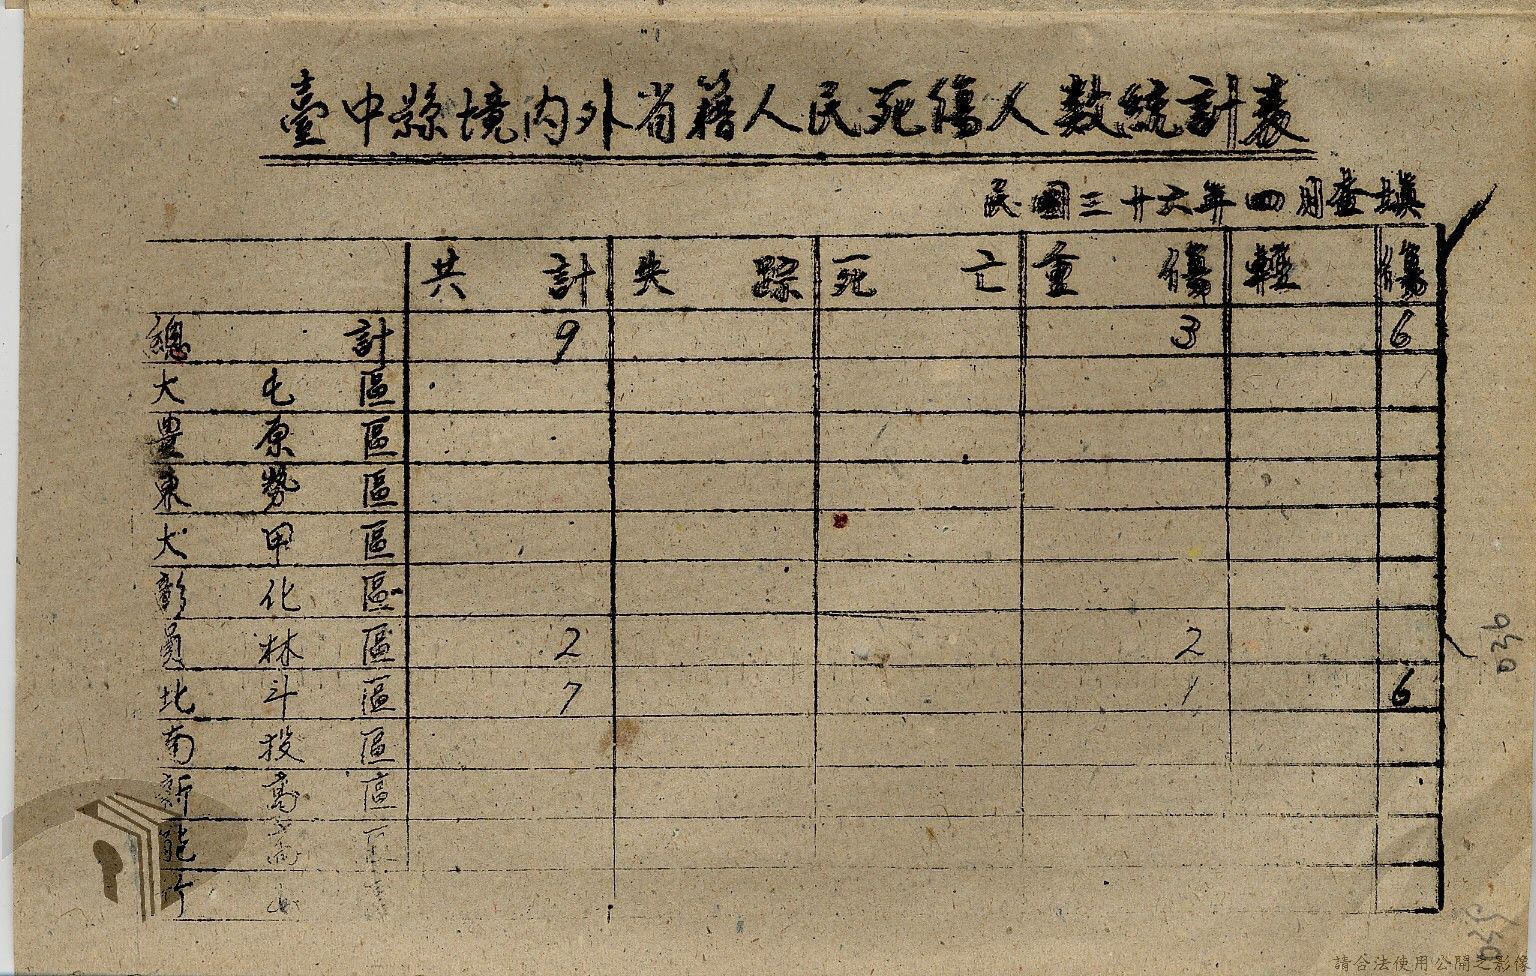 臺中縣境內外省籍人民死傷人数統計表
民國三廿六年四月查填
共計 失踪 死亡 重傷 輕傷
總計 9 3 6
大屯區
豊原區
東勢區
大甲區
彰化區
員林區 2 2
北斗區 7 1 6
南投區
新高區
能高區
竹山
036
請合法使用公開之影像